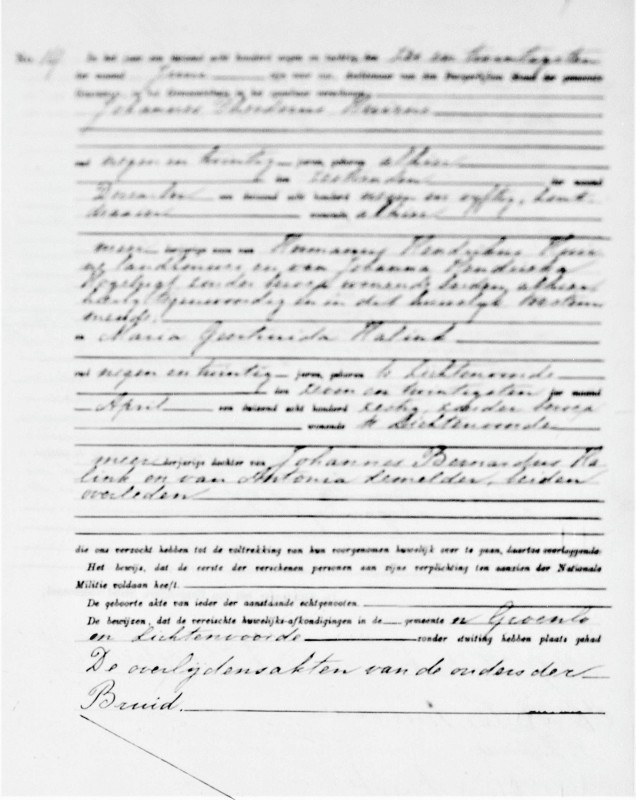 No. 19 In het jaar een duizend acht honderd negen en tachtig, den een en twintigsten
der maand Juni zijn voor ons, Ambtenaar van den Burgerlijken Stand der gemeente
Johannes Theodorus
oud negen en twintig jaren, geboren alhier
den zestienden der maand
December een duizend acht honderd negen en vijftig, 
wonende alhier
meerderjarige zoon van Hermannus Hendrikus
landbouwer, en van Johanna Hendrika
zonder beroep wonende beiden alhier
hierbij tegenwoordig en in dit huwelijk toestem
mende.
en Maria Geertruida Halink
oud negen en twintig jaren, geboren te Lichtenvoorde
den zeven en twintigsten der maand
April een duizend acht honderd zestig, zonder beroep
wonende te Lichtenvoorde
meerderjarige dochter van Johannes Bernardus Ha
link en van Antonia Demelder, beiden
overleden
die ons verzocht hebben tot de voltrekking van hun voorgenomen huwelijk over te gaan, daartoe overleggende:
Het bewijs, dat de eerste der verschenen personen aan zijne verplichting ten aanzien der Nationale
Militie voldaan heeft.
De geboorte akte van ieder der aanstaande echtgenooten.
De bewijzen, dat de vereischte huwelijks-afkondigingen in de gemeente en Groenlo
en Lichtenvoorde zonder stuiting hebben plaats gehad
De overlijdensakten van de ouders der
Bruid.